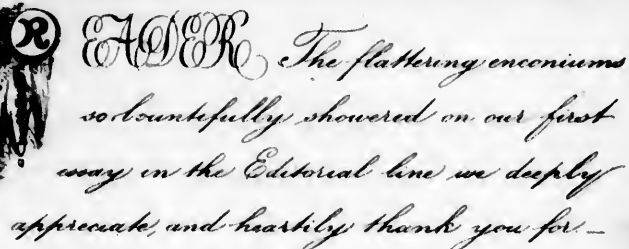 READER The flattering enconiums
so bountifully showered on our first
essay in the Editorial line we deeply
appreciate, and heartily thank you for—